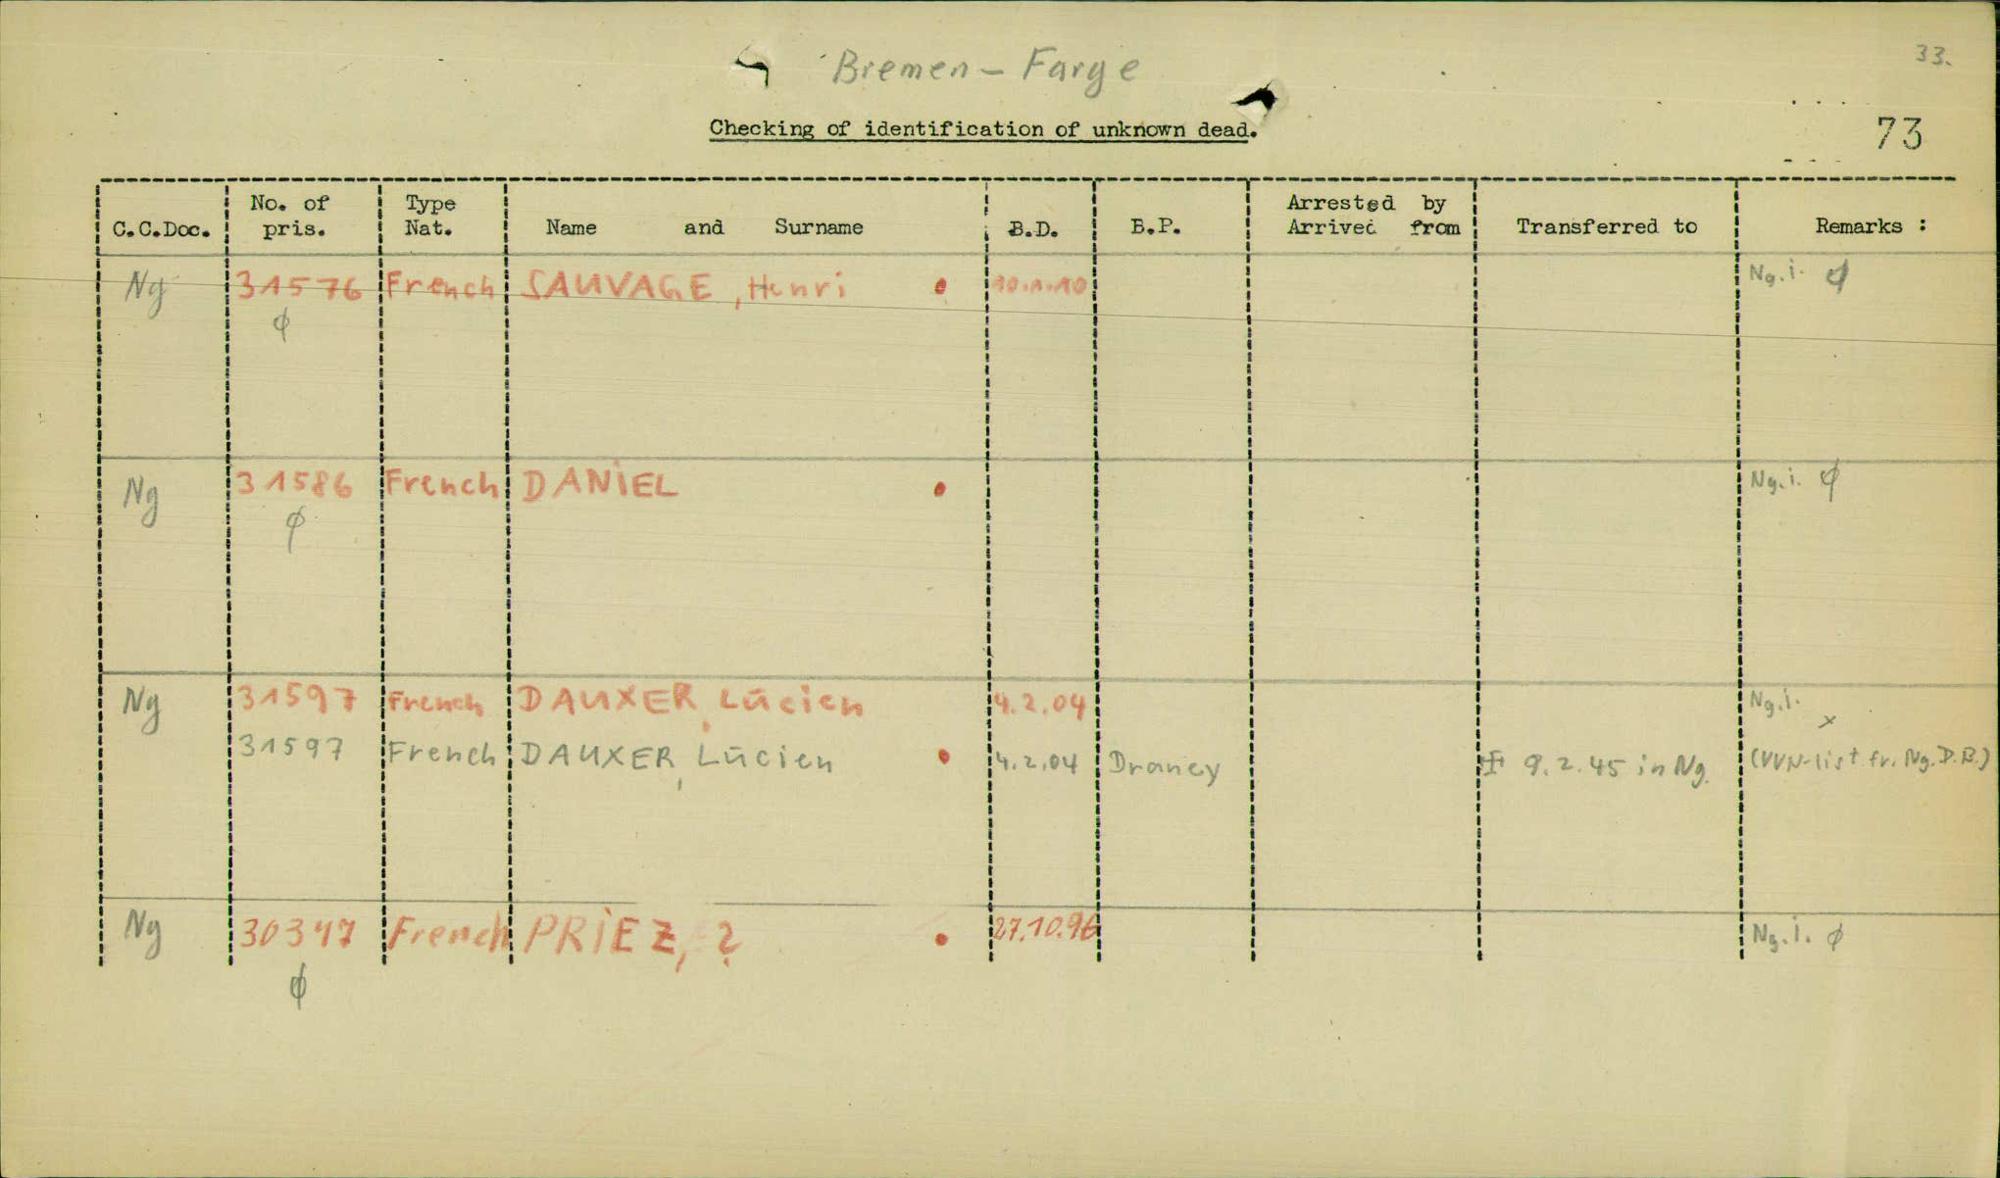 Bremen - Farge
33.
Checking of identification of unknown dead.
73
C.C.Doc. No. of pris. Type Nat. Name and Surname B.D. B.P. Arrested by Arrived from Transferred to Remarks :
Ng 31576 French SAUVAGE, Henri • 10.1.10 Ng.i. ϕ
ϕ
Ng 31586 French DANIEL • Ng.i. ϕ
ϕ
Ng 31597 French DAUXER, Lūcien 4.2.04 Ng.i. x
31597 French DAUXER, Lūcien • 4.2.04 Drancy 9.2.45 in Ng. (VVN-list fr. Ng. D.B.)
Ng 30347 French PRIEZ, ? • 27.10.96 Ng.i. ϕ
ϕ